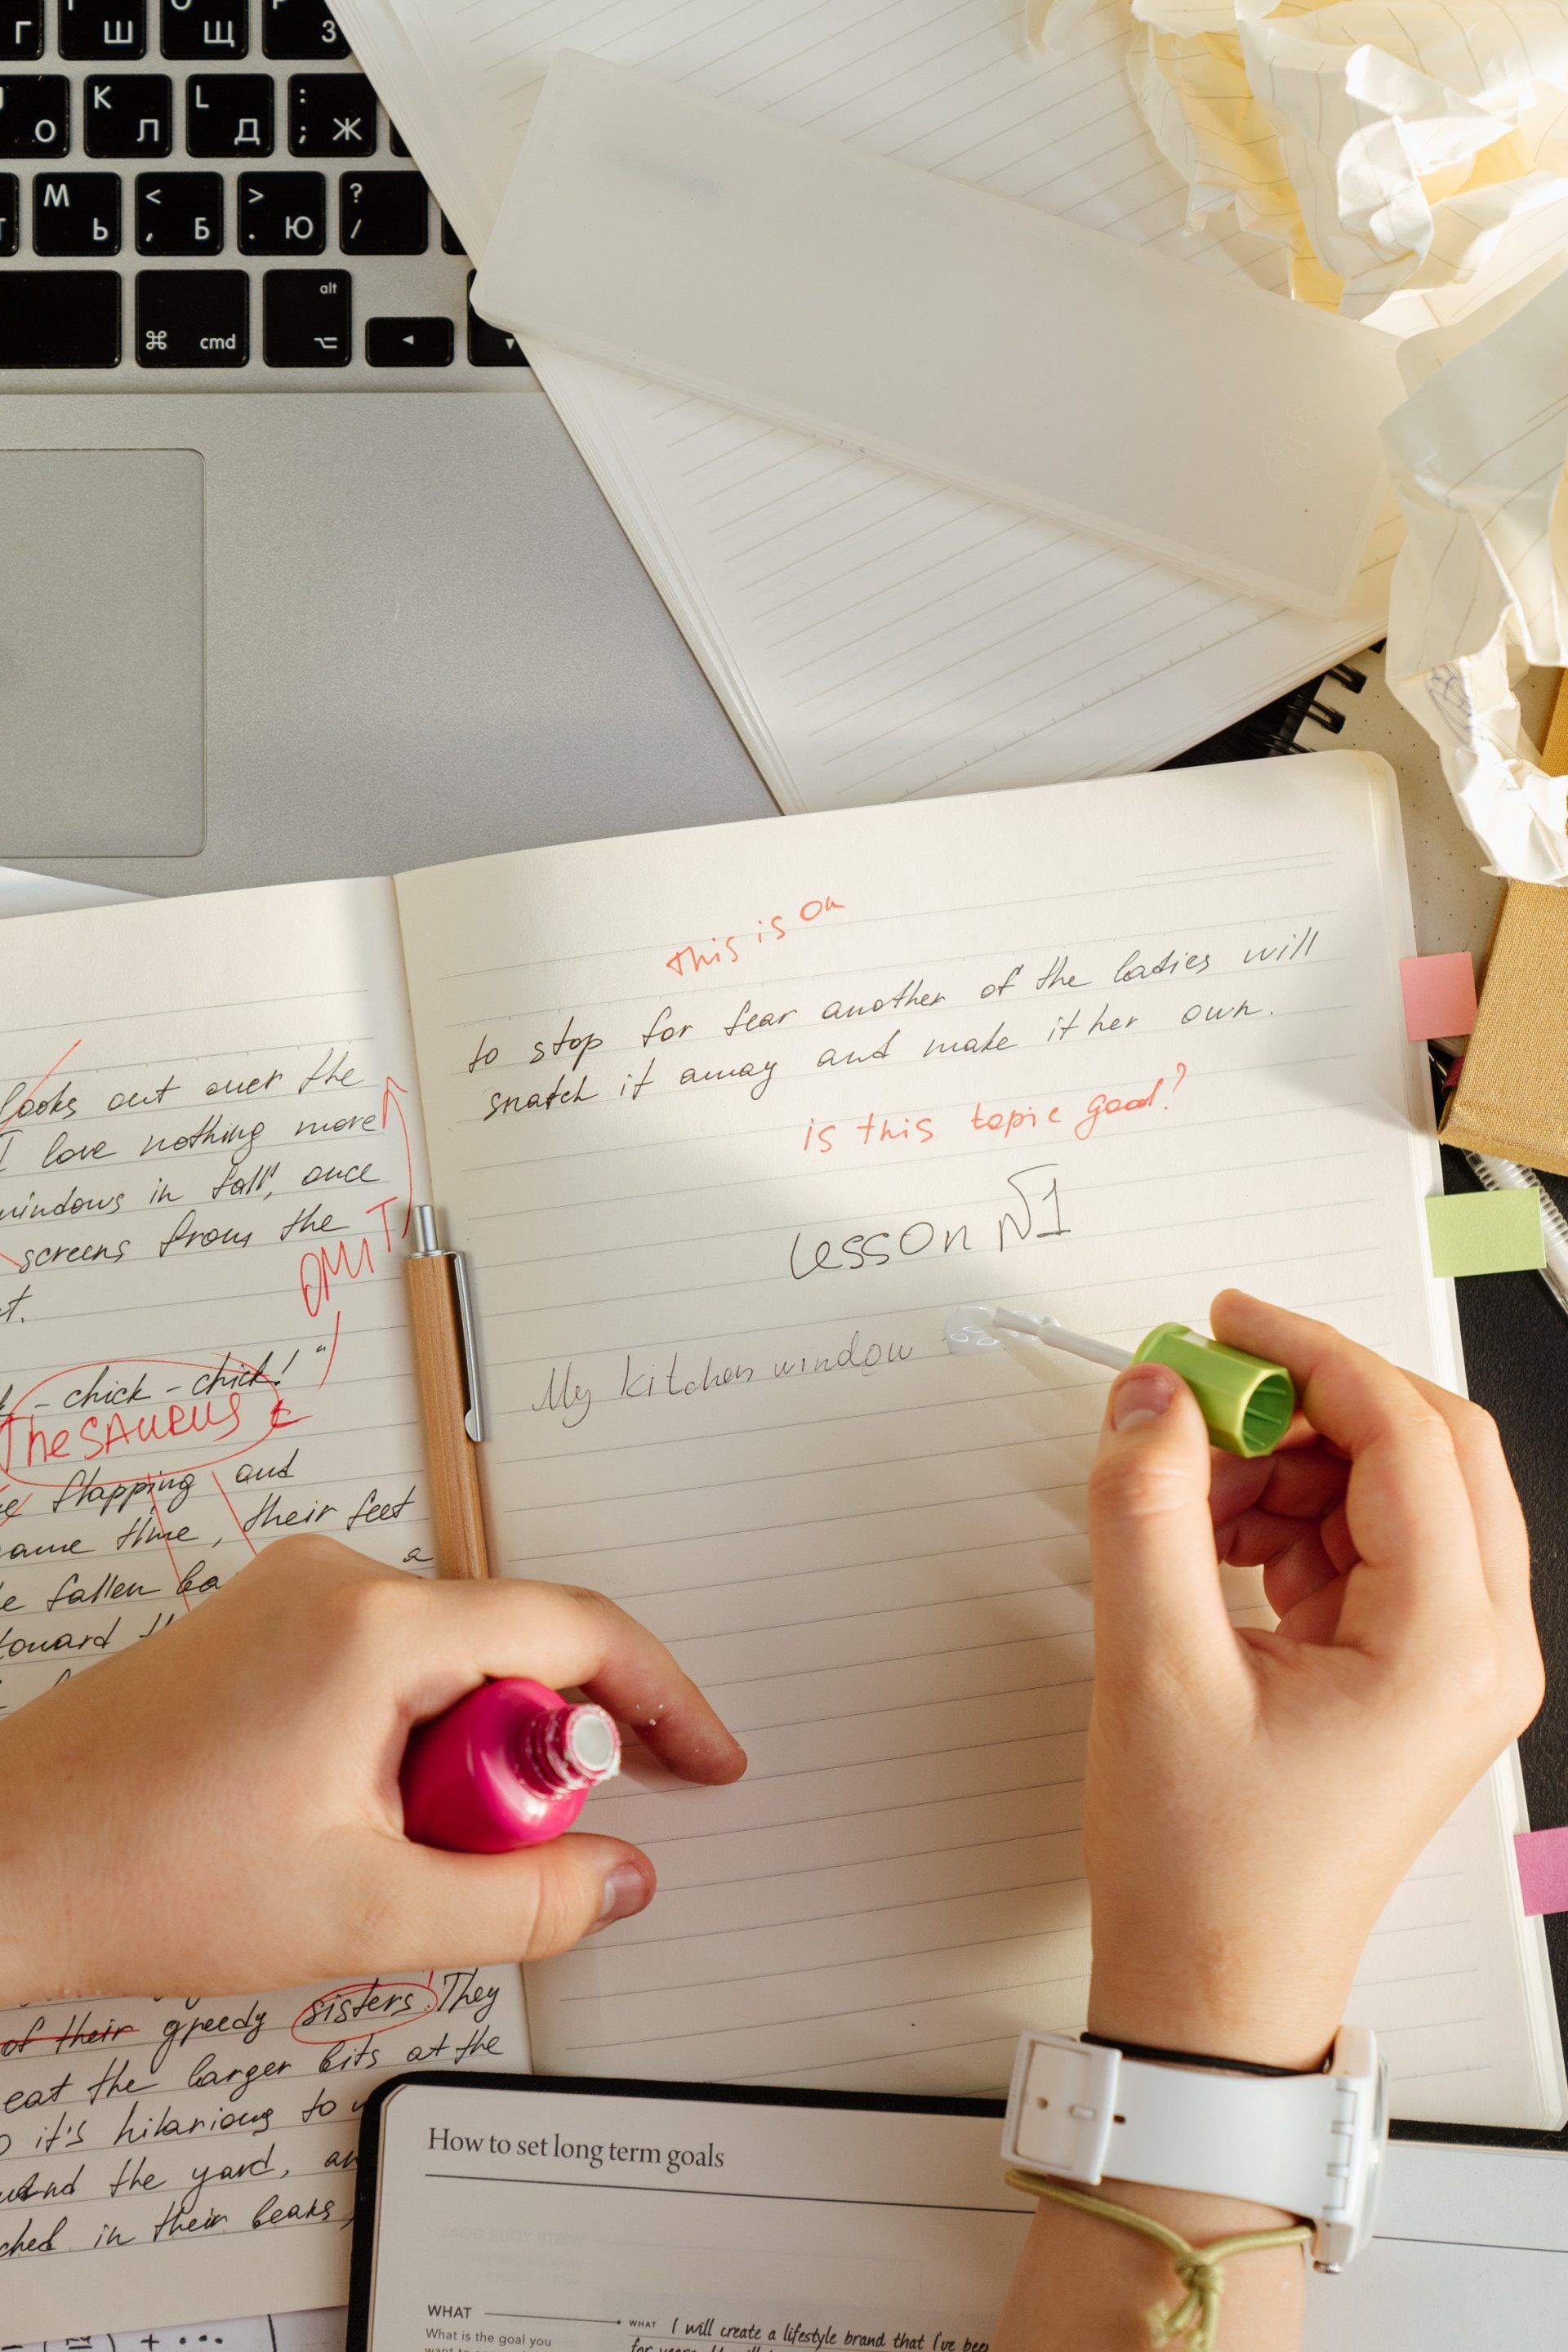 Г Ш Щ З
О K Л L Д : ; Ж
M Ь < , Б > . Ю ? /
⌘ cmd alt ⌥ ◄ ▼
this is on
to stop for fear another of the ladies will
snatch it away and make it her own.
is this topic good?
Lesson N1
My kitchen window
looks out over the
I love nothing more
windows in fall, once
screens from the
OMIT
- chick - chick!"
TheSAURUS
flapping and
same time, their feet
a
fallen
toward
of their greedy sisters. They
eat the larger bits at the
it's hilarious to
the yard,
in their beaks,
How to set long term goals
WHAT
What is the goal you
WHAT I will create a lifestyle brand that I've been
+ ...